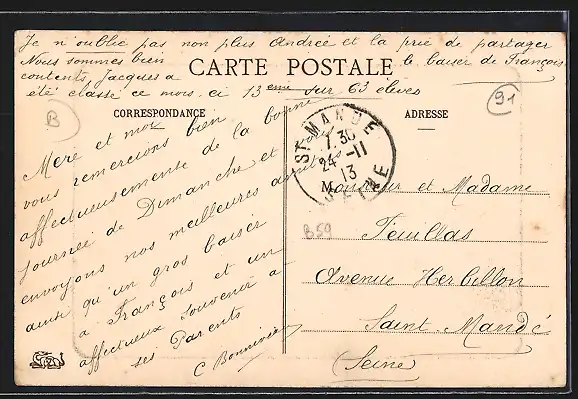 Je n'oublie pas non plus Andrée et la prie de partager
Nous sommes bien le baiser de François
contents Jacques a
été classé ce mois ci 13ème sur 63 élèves
CARTE POSTALE
CORRESPONDANCE
ADRESSE
B
91
Mère et moi
vous remercions bien
affectueusement de la bonne
journée de Dimanche et vous
envoyons nos meilleures amitiés
ainsi qu'un gros baiser
à François et un
affectueux souvenir à
ses Parents
C Bonnivier
ST MANDÉ
7.30
24 -11
13
SEINE
B59
Monsieur et Madame
Feuillas
Avenue Herbillon
Saint Mandé
(Seine)